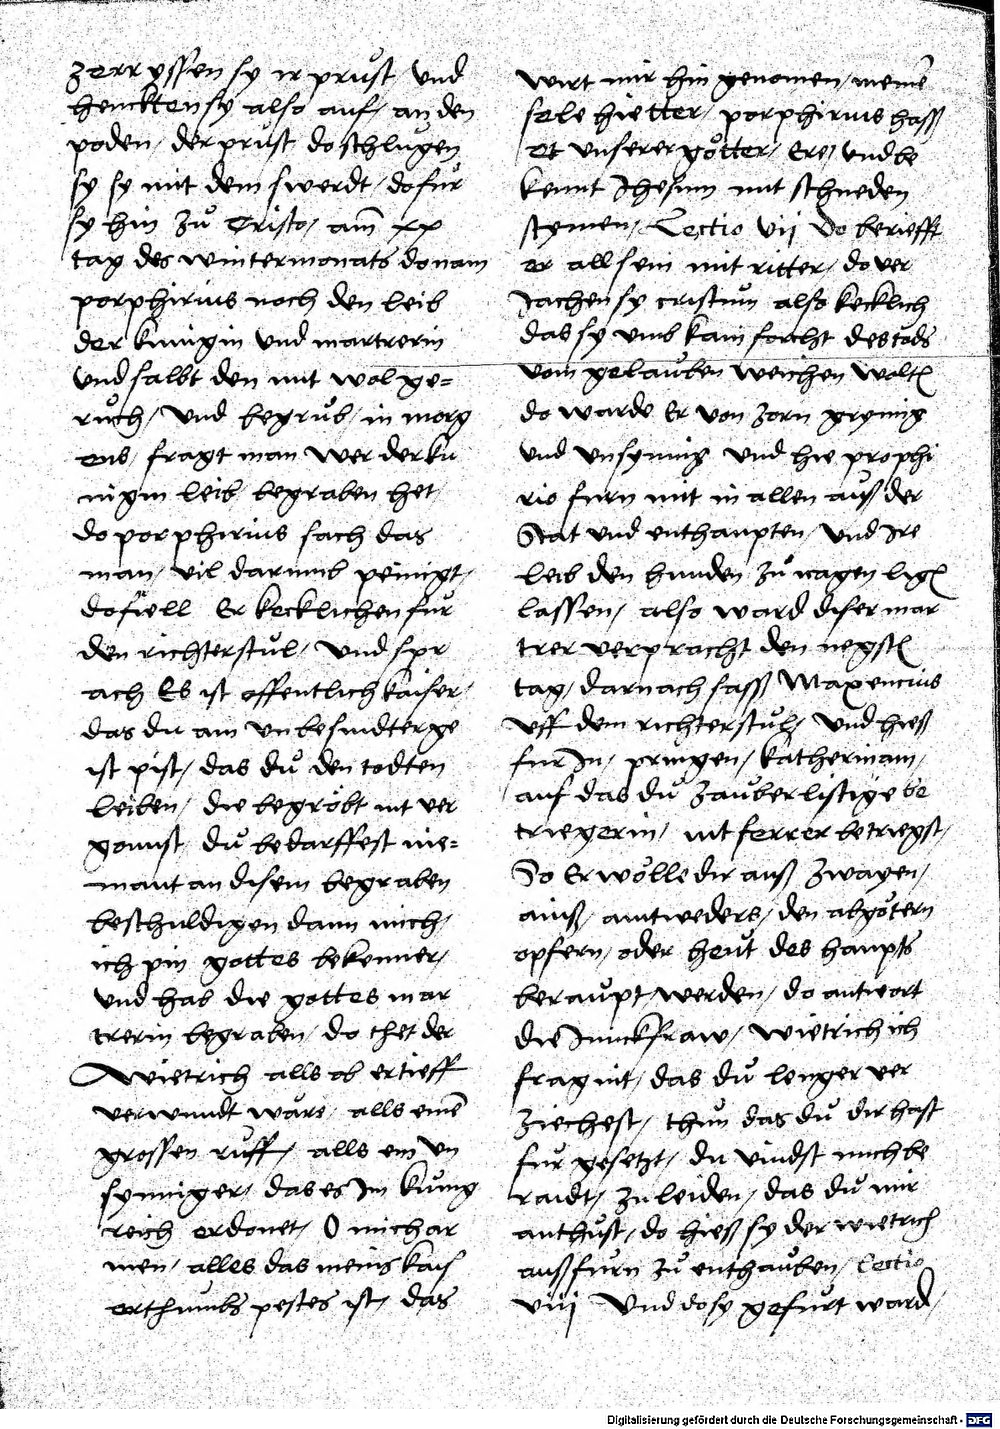 zerryssen sy ir prust und
henckten sy also auf, an den
poden, der prust do schlugen
sy sy mit dem swerdt, do fur
sy hin zů Cristo, am xx
tag des wintermonats do nam
porphirius noch den leib
der kunigin und martrerin
und salbt den mit wol ge=
ruch, und begrub, in morg
ens, fragt man wer der ku
nigin leib begraben het,
do porphirius sach das
man, vil darumb peinigt,
do fiell Er kecklichen fur
den richterstul, und spr
ach Es ist offentlich kaiser,
das du ain unbesindter ge
ist pist, das dů den todten
leiben, die begröbt nit ver
gonnst, dů bedarffest nie=
mant an disem begraben
beschuldigen dann mich,
ich pin gottes bekenner,
und hab die gottes mar
trerin begraben, do thet der
Wietrich alls ob er tieff
verwundt wäre, alls einē
grossen ruff, alls ein un
synniger, das es Im kung
reich erdonet, O mich ar
men, alles das meins kais
erthumbs pestes ist, das
wirt mir hin genomen, meinē
sele hietter, porphirius hass
et unserer götter, Ere, und be
kennt Jhesum mit schneden
stymen, Lectio vij Do beriefft
er all sein mit ritter, do ver
Jachen sy cristum also kecklich
das sy umb kain forcht des tods
vom gelauben weichen wolten
do warde Er von zorn grymig
und unsynnig und hie prophi
rio furn mit in allen auß der
Stat und enthaupten, und Ire
leib den hunden zů nagen ligen
lassen, also ward diser mar
trer verpracht den negsten
tag, darnach sass Maxencius
uff dem richterstul, und hieß
fur In, pringen, katherinam,
auf das du zauberlistige be
triegerin, nit ferrer betriegst,
So Er wölle dir auß zwayen,
ainß, aintweders, den abgötern
opfern, oder heut des haupts
beraupt werden, do antwort
die Junckfraw, Wietrich ich
frag nit, das dů lenger ver
ziechest, thun das dů dir hast
fur gesetzt, du vindst mich be
raidt, zu leiden, das dů mir
anthust, do hieß sy der wietrich
außfurn zů enthauben, Lectio
viij Und do sy gefurt ward,
Digitalisierung gefördert durch die Deutsche Forschungsgemeinschaft - DFG